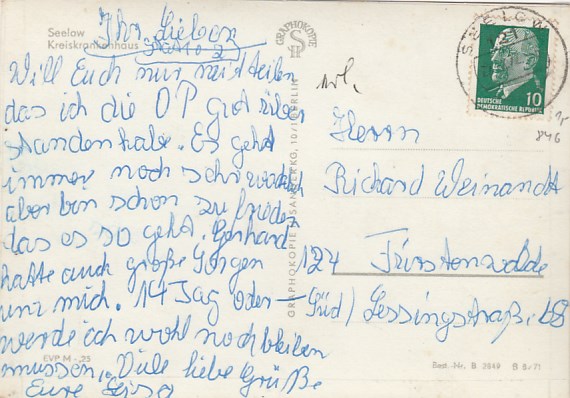 Seelow
Kreiskrankenhaus
Ihr Lieben
Will Euch nur mitteilen
das ich die OP gut über
standen habe. Es geht
immer noch sehr wacklich
aber bin schon zufrieden
das es so geht. Gerhard
hatte auch große Sorgen
um mich. 14 Tag oder
werde ich wohl noch bleiben
müssen. Viele liebe Grüße
Eure
EVP M -,25
GRAPHOKOPIE
GRAPHOKOPIE H. SANDER KG, 1071 BERLIN
SEELOW
DEUTSCHE
DEMOKRATISCHE REPUBLIK
10
846
Herrn
Richard Weinandt
124 Fürstenwalde
Süd / Lessingstraß. 28
Best. Nr. B 2649 B 8/71